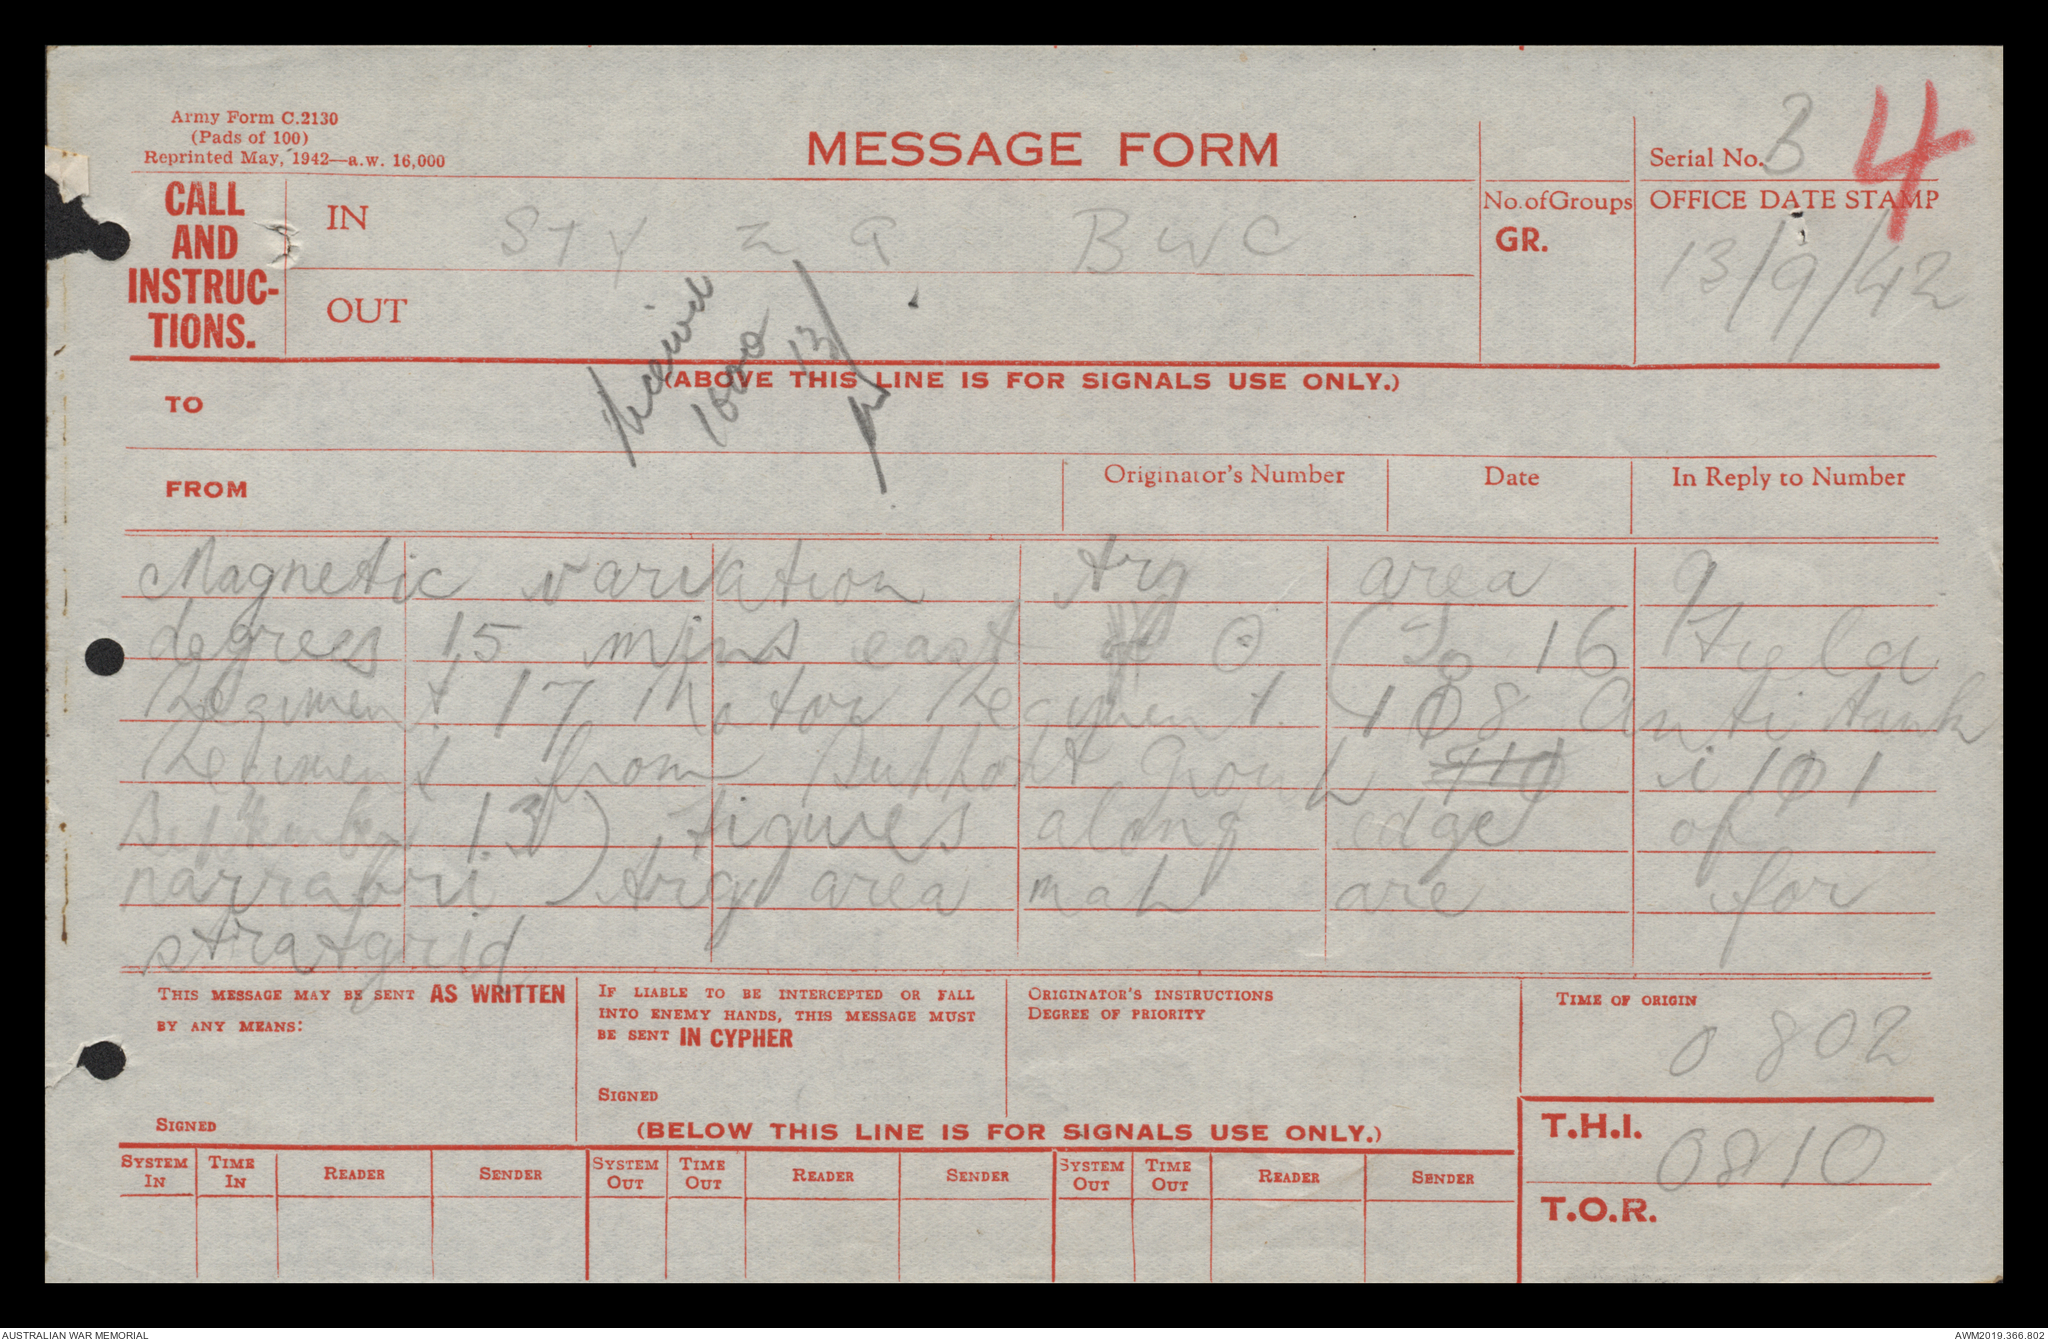 Army Form C.2130
(Pads of 100)
Reprinted May, 1942—a.w. 16,000
MESSAGE FORM
Serial No. B 4
CALL
AND
INSTRUC-
TIONS.
IN STY Z 9 BWC
OUT
No. of Groups
GR.
OFFICE DATE STAMP
13/9/42
Received
1000
13/
(ABOVE THIS LINE IS FOR SIGNALS USE ONLY.)
TO
FROM
Originator's Number
Date
In Reply to Number
Magnetic variation trg area 9
degrees 15 mins east of 0 (To 16 Field
Regiment 17 Motor Regiment 108 Anti tank
Regiment from Support Group i 101
September 13) figures along edge of
narrabri trg area map are for
stratgrid
THIS MESSAGE MAY BE SENT AS WRITTEN
BY ANY MEANS:
SIGNED
IF LIABLE TO BE INTERCEPTED OR FALL
INTO ENEMY HANDS, THIS MESSAGE MUST
BE SENT IN CYPHER
SIGNED
ORIGINATOR'S INSTRUCTIONS
DEGREE OF PRIORITY
TIME OF ORIGIN
0802
(BELOW THIS LINE IS FOR SIGNALS USE ONLY.)
T.H.I.
0810
T.O.R.
SYSTEM IN
TIME IN
READER
SENDER
SYSTEM OUT
TIME OUT
READER
SENDER
SYSTEM OUT
TIME OUT
READER
SENDER
AUSTRALIAN WAR MEMORIAL
AWM2019.366.802